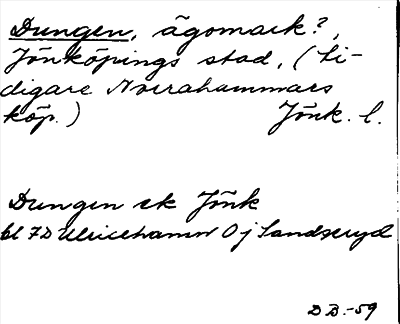 Dungen, ägomark?,
Jönköpings stad, (ti-
digare Norrahammars
köp.) Jönk. l.
Dungen ek Jönk
bl 7D Ulricehamn Oj Sandseryd
DB.-59